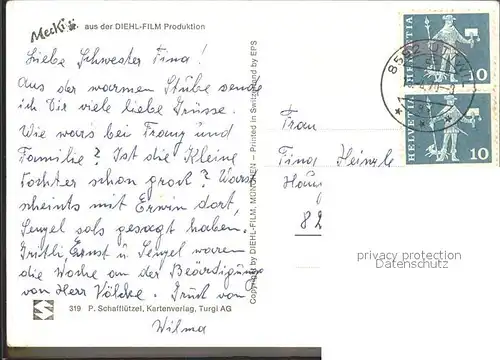 Mecki
aus der DIEHL-FILM Produktion
Liebe Schwester Tina!
Aus der warmen Stube sende
ich Dir viele liebe Grüsse.
Wie wars bei Franz und
Familie? Ist die Kleine
Tochter schon gross? Warst
scheints mit Erwin dort,
Sengel sols gesagt haben.
Gritli, Ernst u Sengel waren
die Woche an der Beärdigung
von Herr Völcke. Gruss von
Wilma
319 P. Schafflützel, Kartenverlag, Turgi AG
Copyright by DIEHL-FILM, MÜNCHEN — Printed in Switzerland by EPS
HELVETIA 10
HELVETIA 10
8582
Frau
Tina Heinzle
82
privacy protection
Datenschutz